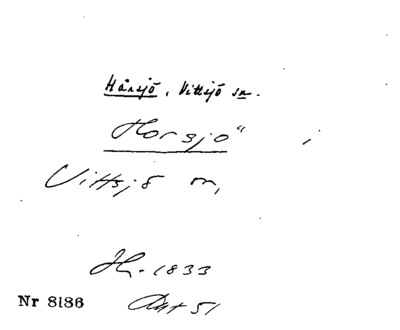 Hårsjö, Vittsjö sn.
"Horsjö" i
Vittsjö sn,
Jh. 1833
Nr 8186 Akt 51